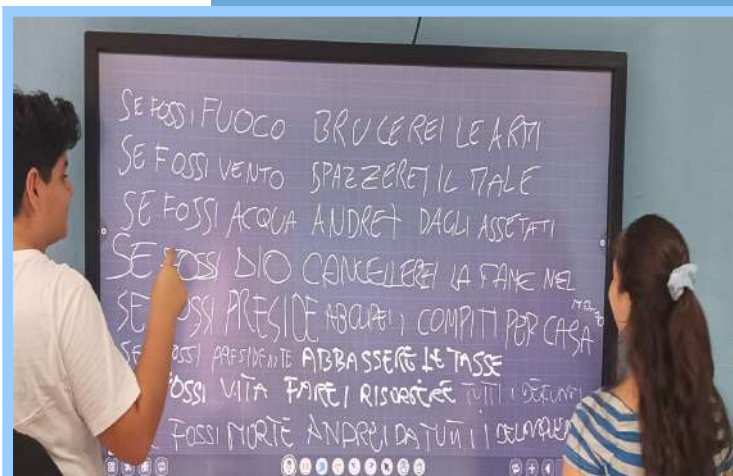 SE FOSSI FUOCO BRUCEREI LE ARMI
SE FOSSI VENTO SPAZZEREI IL MALE
SE FOSSI ACQUA ANDREI DAGLI ASSETATI
SE FOSSI DIO CANCELLEREI LA FAME NEL MONDO
SE FOSSI PRESIDE ABOLIREI I COMPITI PER CASA
SE FOSSI PRESIDENTE ABBASSEREI LE TASSE
FOSSI VITA FAREI RISORGERE TUTTI I DEFUNTI
FOSSI MORTE ANDREI DA TUTTI I